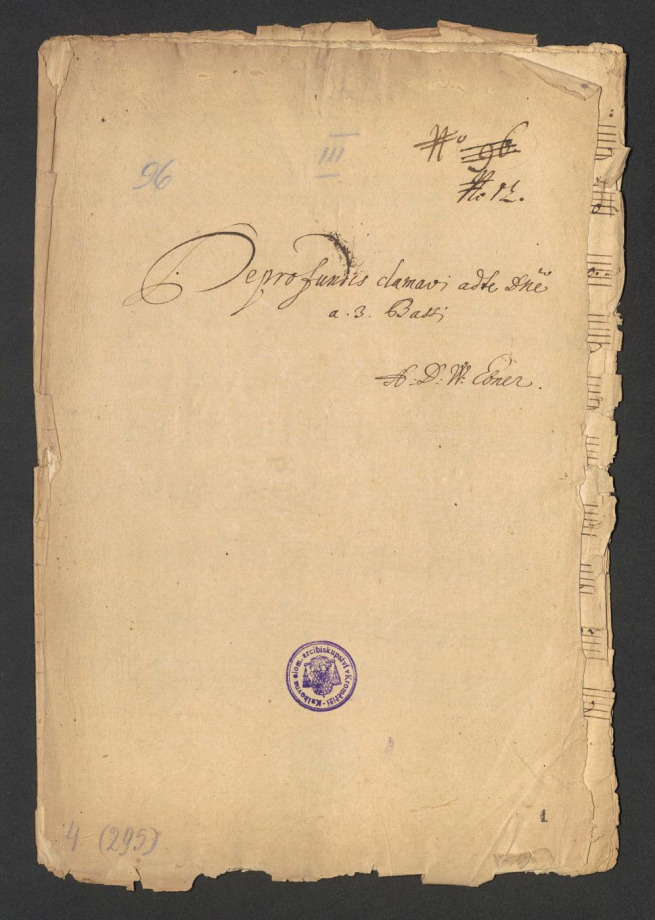 96
III
No 96
No 12.
De profundis clamavi ad te Dne
a. 3. Bassi
A. D: W: Ebner.
Knihovna olom. arcibiskupství v Kroměříži
4 (295)
1